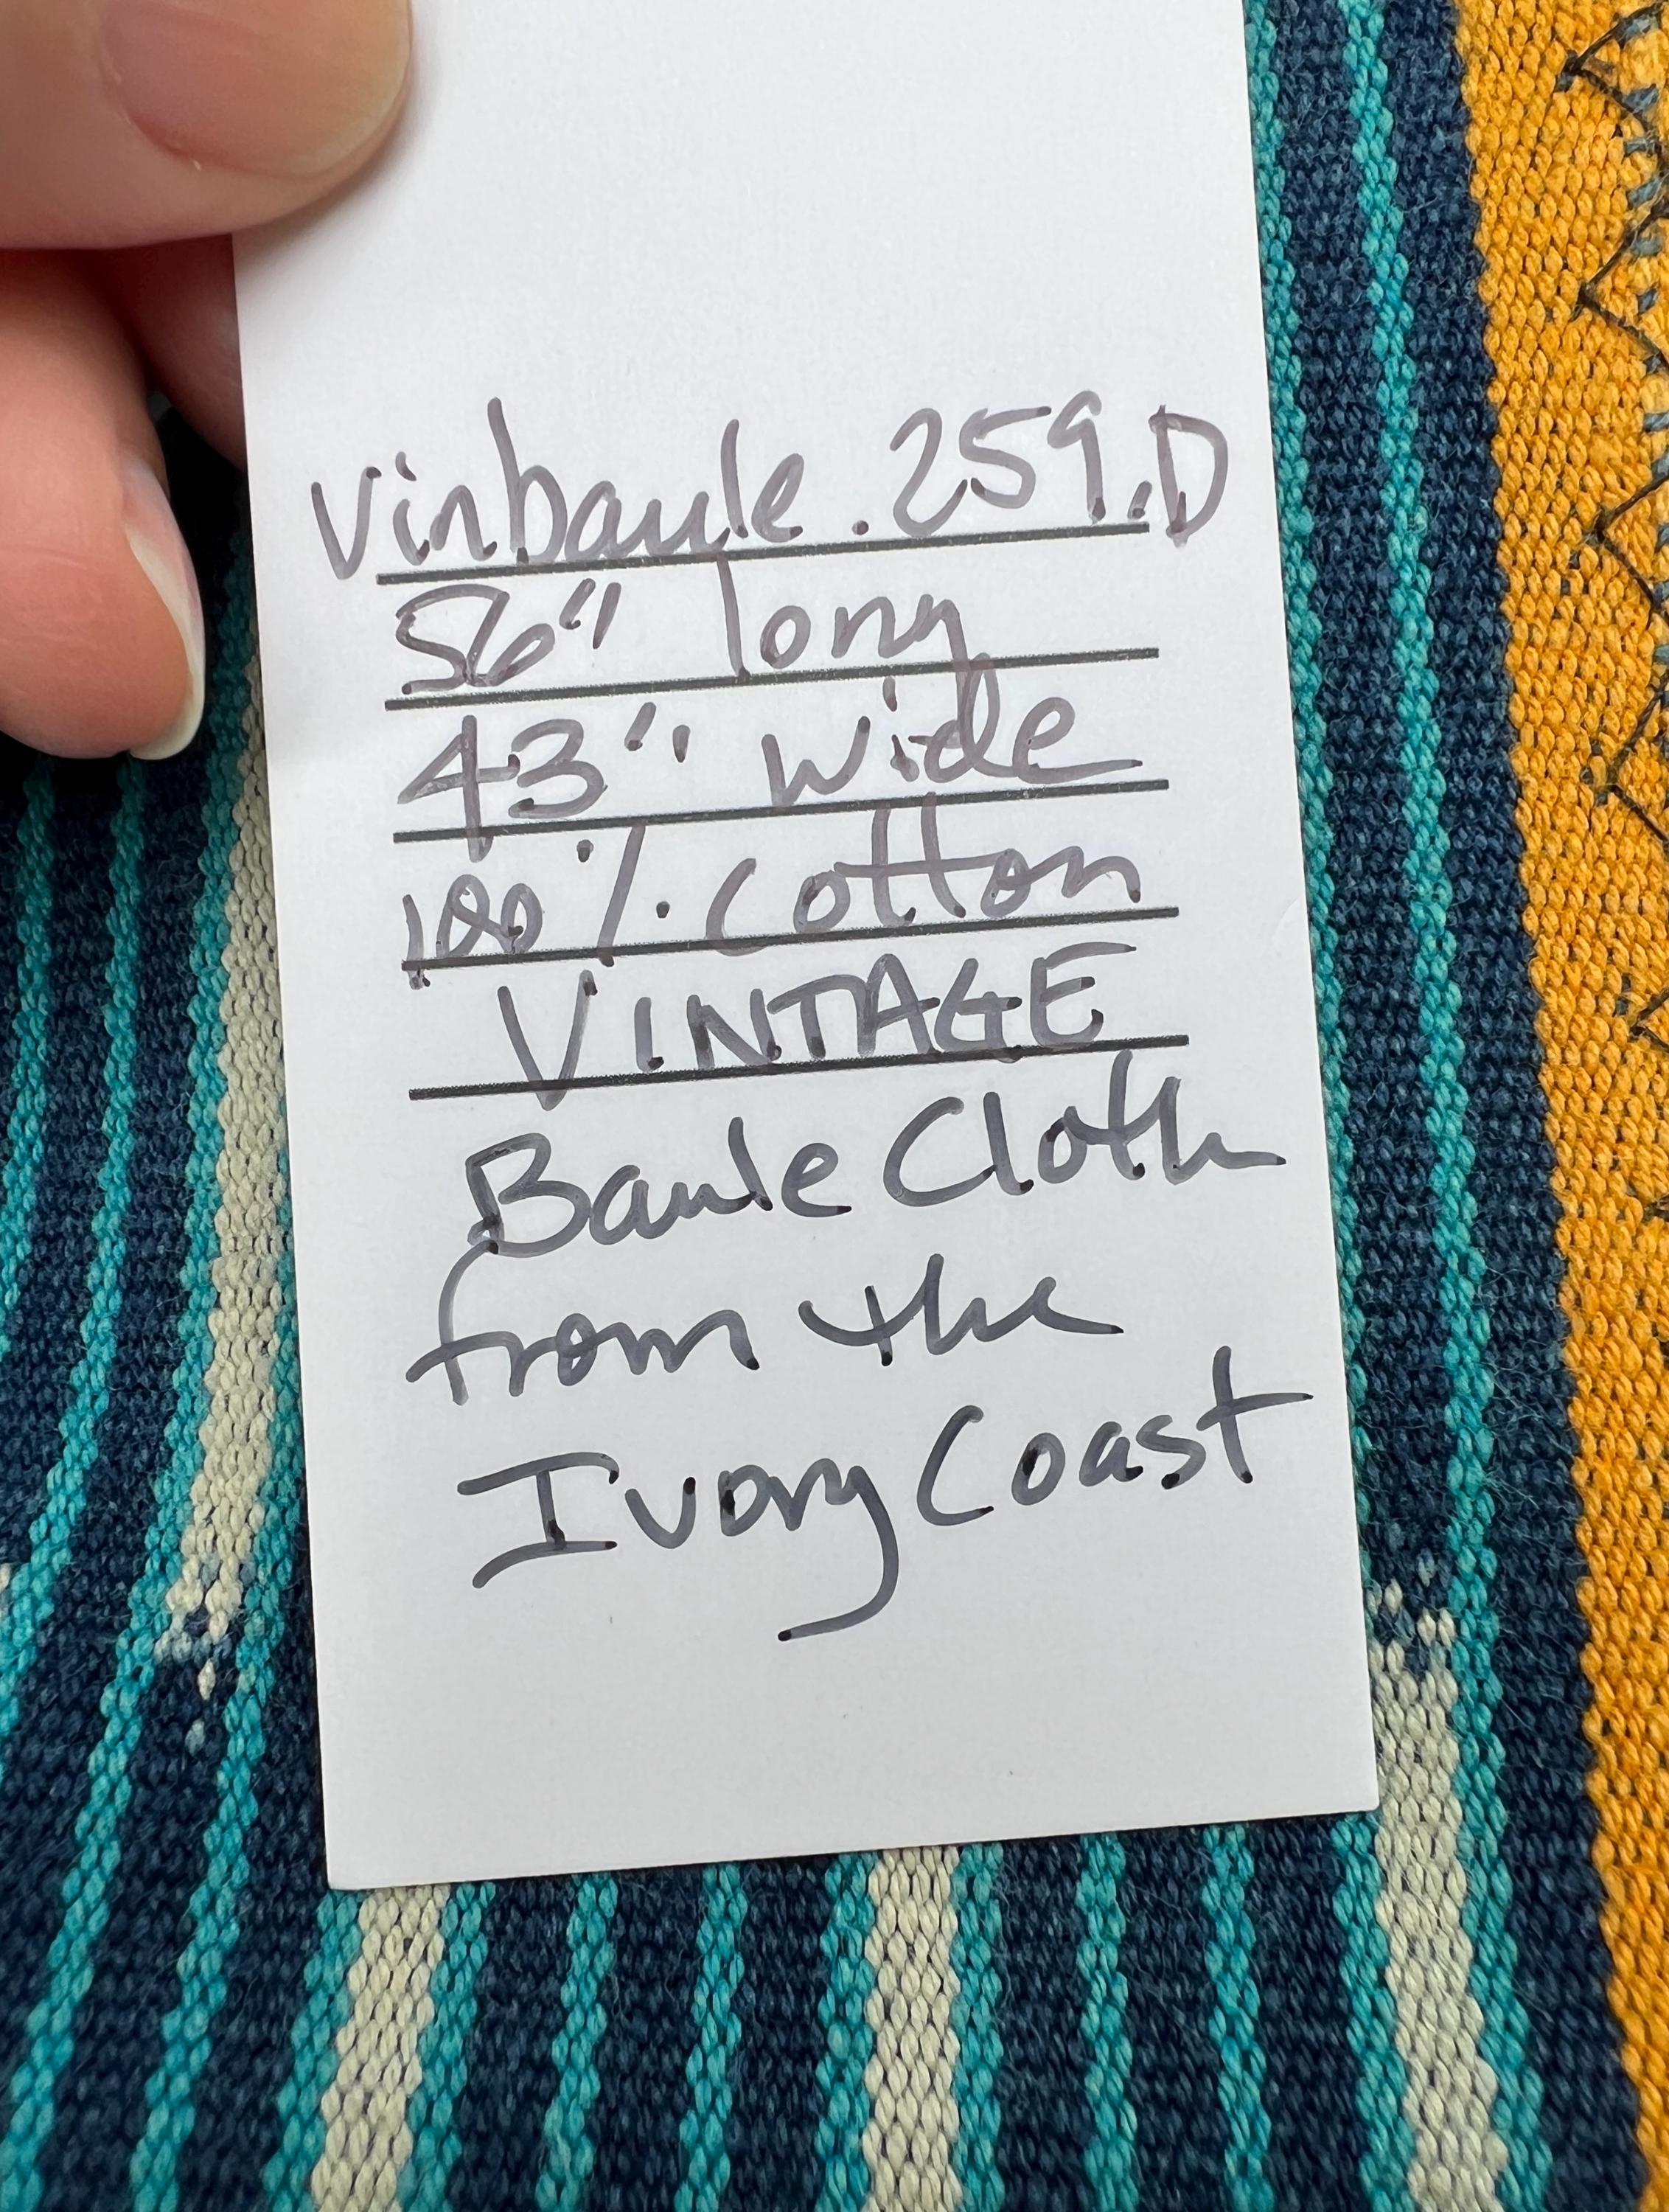 Vinbaule.259.D
56" long
43" wide
100% cotton
VINTAGE
Baule Cloth
from the
Ivory Coast